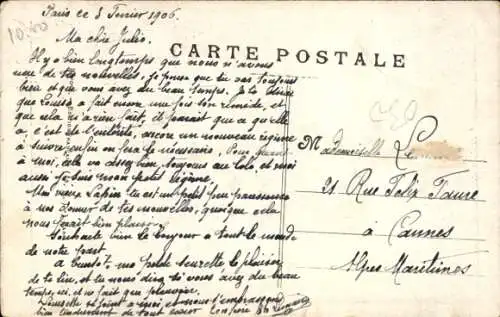 Paris ce 8 Fevrier 1906.
Ma chie Julia.
CARTE POSTALE
Il y a bien longtemps que nous n'avons
une de tes nouvelles, je pense que tu vas toujours
bien et que vous avez du beau temps. Je te dirai
que Louise a fait encore une fois son remède, et
que cela n'a rien fait, il parait que ce qu'elle
a, c'est de l'entérite, encore un nouveau régime
à suivre, enfin on fera le nécessaire. Pour
à moi, cela va assez bien toujours au lolo, et moi
aussi je suis mon petit régime.
Mon vieux tu est un petit peu paresseuse
à nous donner de tes nouvelles, quoique cela
nous ferait bien plaisir.
Souhaite bien le bonjour à tout le monde
de notre part
à bientôt, ma petite seurette le plaisir
de te lire, et tu nous diras si vous avez du beau
temps, ici, il ne fait que pleuvoir.
se joint à moi, et nous t'embrassons
bien tendrement de tout cœur
Mademoiselle
21 Rue Felix Faure
à Cannes
Alpes Maritimes